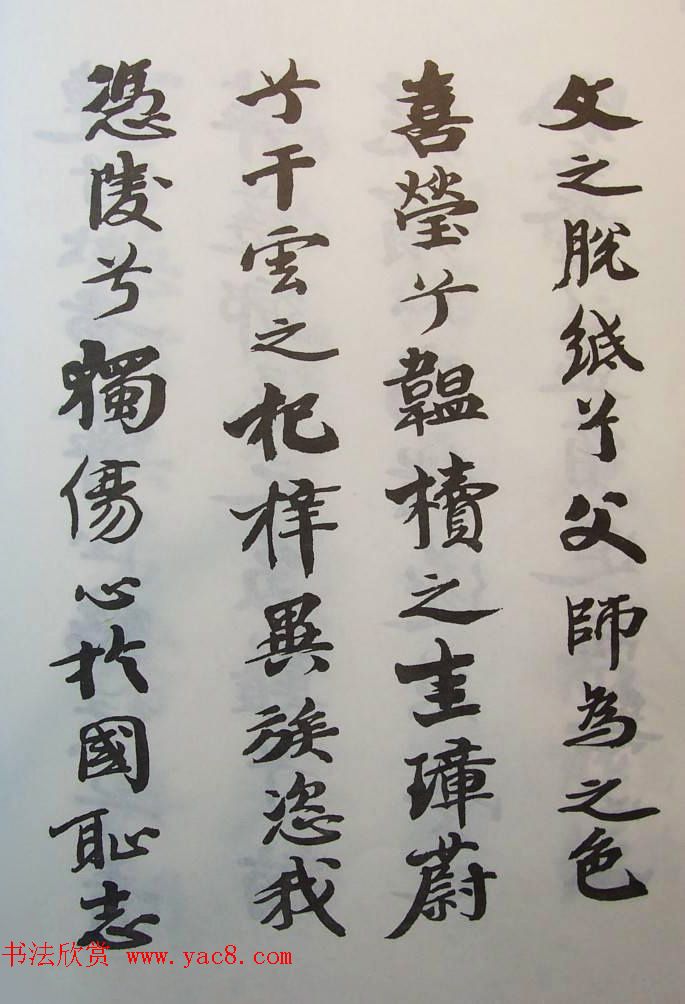 文之脱紙兮父師為之色
喜瑩兮韞櫝之圭璋蔚
兮干雲之杞梓異族恣我
憑陵兮獨傷心於國恥志
书法欣赏 www.yac8.com